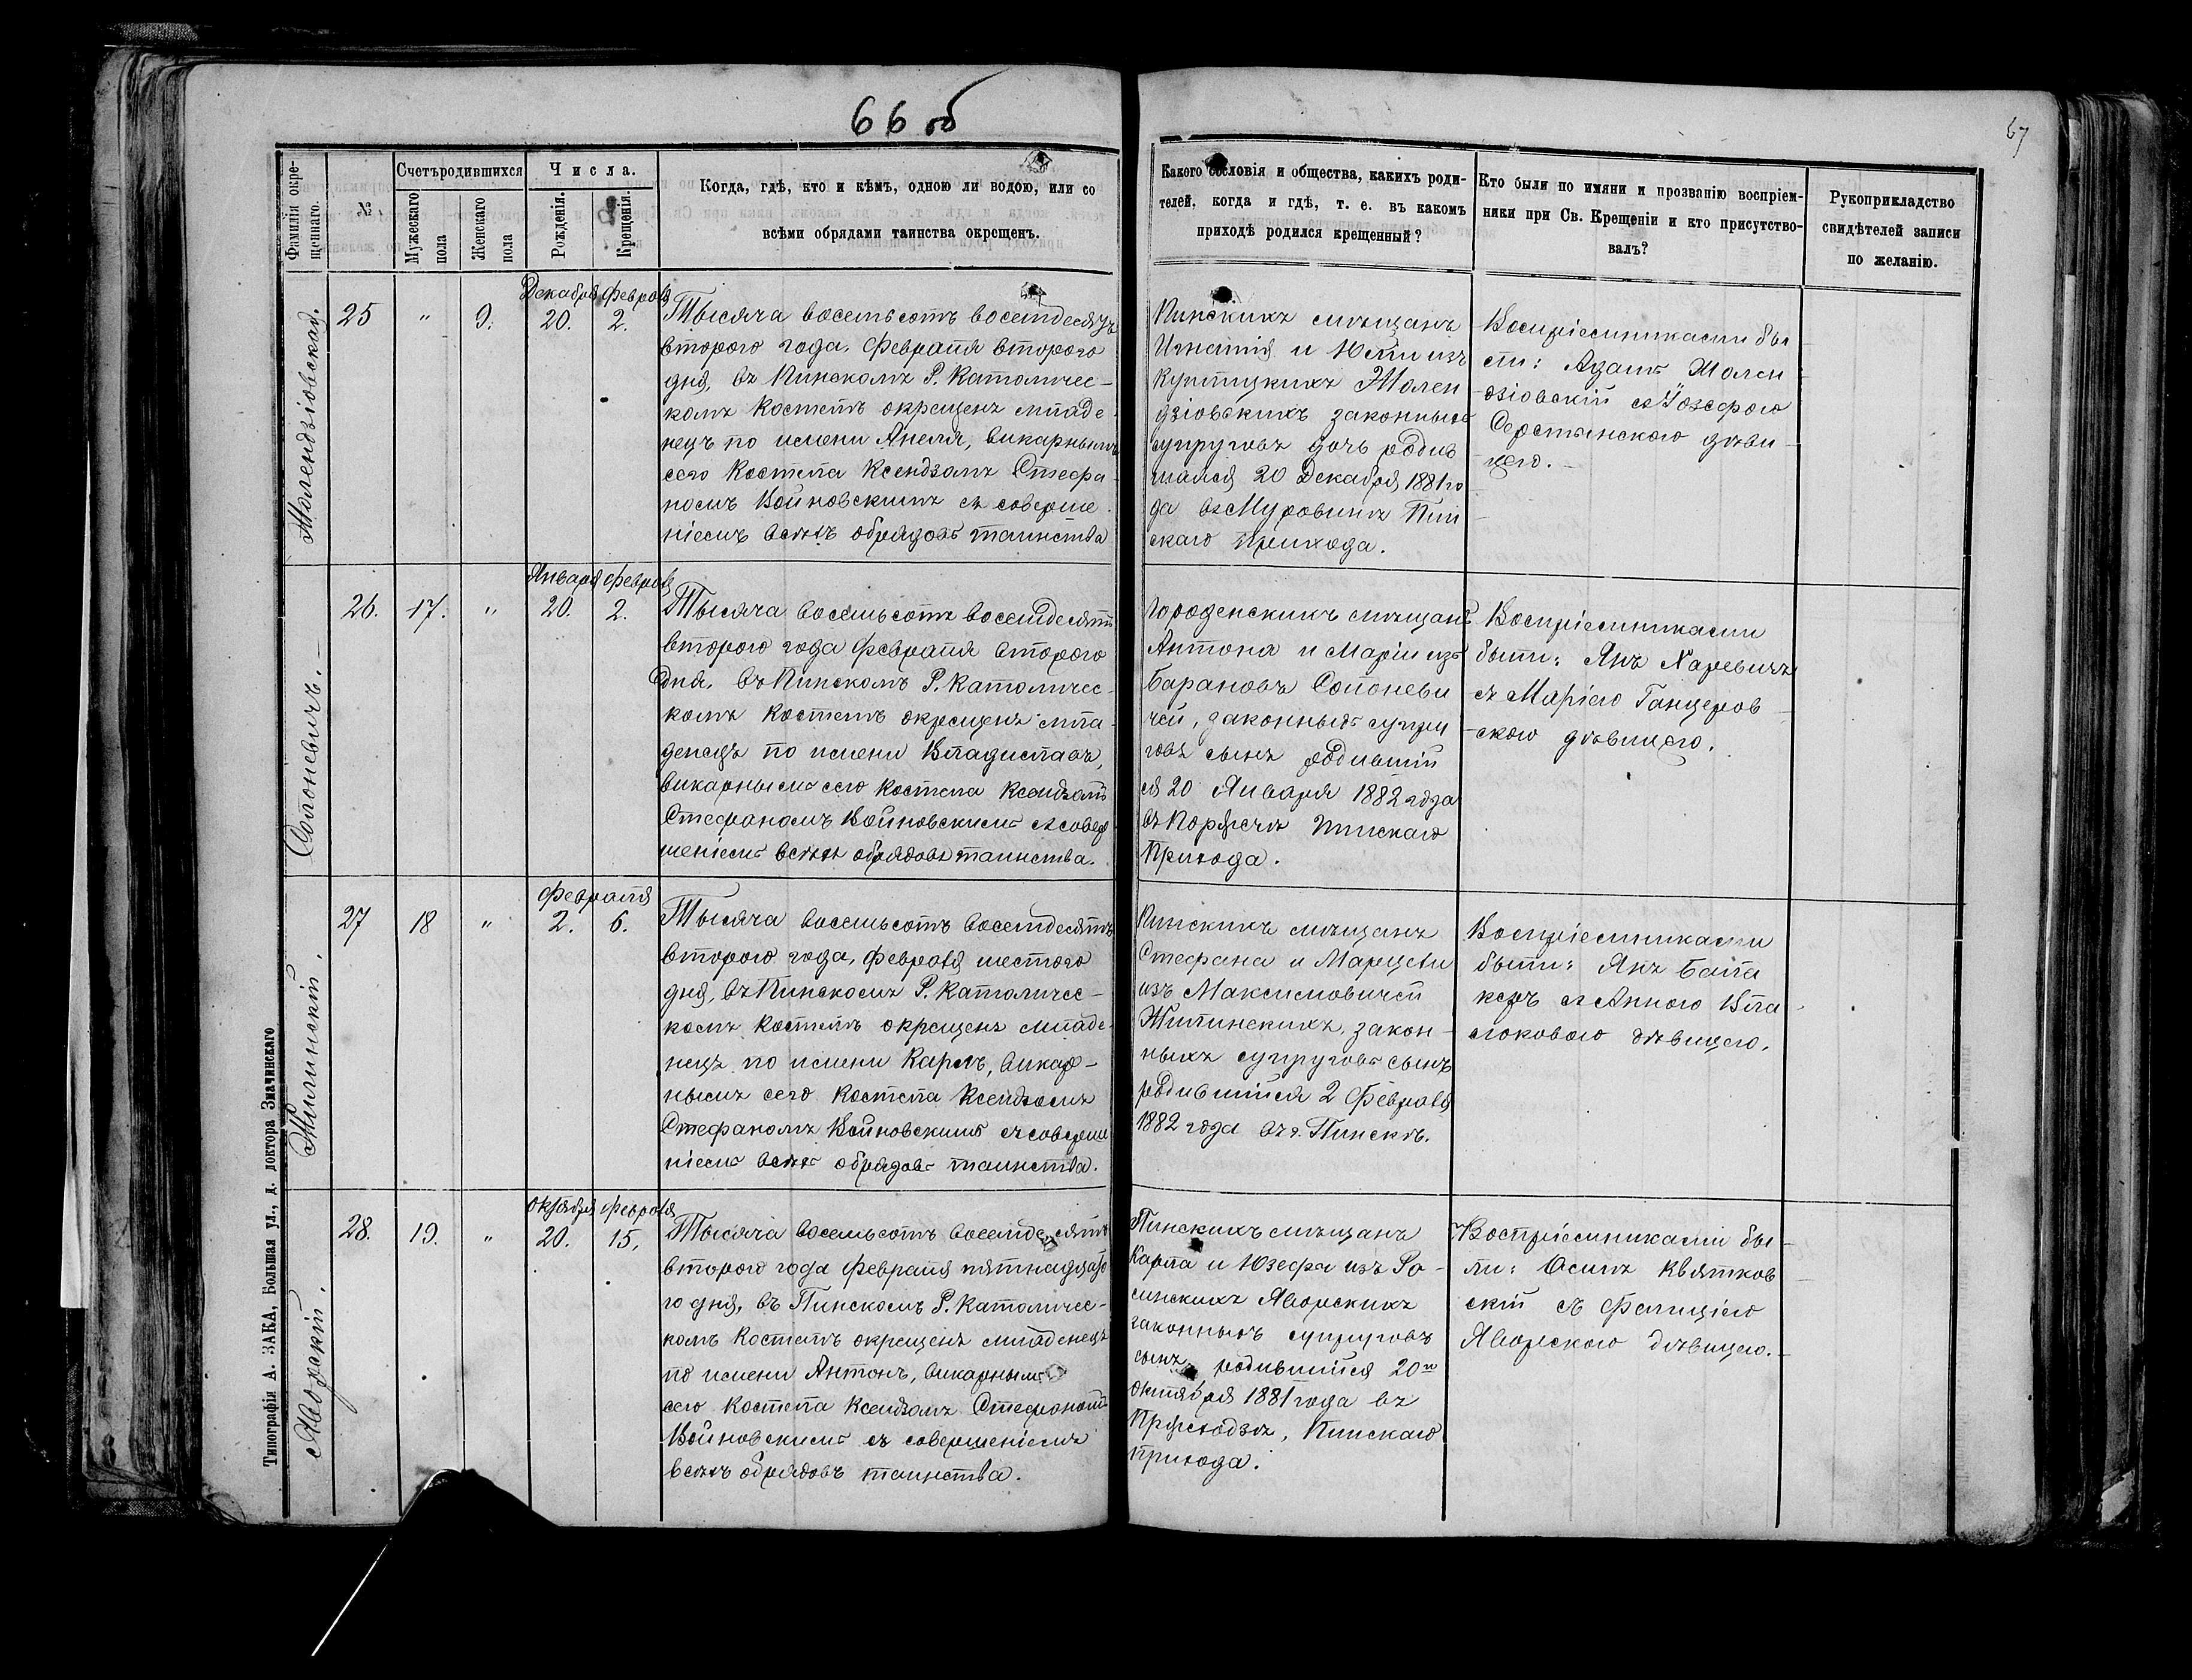 66 об
67
Фамилія окре-
щеннаго.
№
Счетъ родившихся
Мужескаго
пола
Женскаго
пола
Числа.
Рожденія.
Крещенія.
Когда, гдѣ, кто и кѣмъ, одною ли водою, или со
всѣми обрядами таинства окрещенъ.
Какого сословія и общества, какихъ роди-
телей, когда и гдѣ, т. е. въ какомъ
приходѣ родился крещенный?
Кто были по имяни и прозванію воспріем-
ники при Св. Крещеніи и кто присутство-
валъ?
Рукоприкладство
свидѣтелей записи
по желанію.
Жолендзіовская.
25
"
9.
Декабря Февраля
20. 2.
Тысяча восемьсотъ восемдесятъ
второго года, Февраля второго
дня, въ Пинскомъ Р. Католичес-
комъ Костелѣ окрещенъ младе-
нецъ по имени Анеля, викарнымъ
сего Костела Ксендзомъ Стефа-
номъ Войновскимъ съ соверше-
ніемъ всѣхъ обрядовъ таинства
Пинскихъ мѣщанъ
Игнатія и Юліи изъ
Жолен
дзіовскихъ законныхъ
супруговъ дочь родив
шаяся 20 Декабря 1881 го
да въ Муровинѣ Пин
скаго прихода.
Воспріемниками бы
ли: Адамъ Жолен
дзіовскій съ Іозефою
дѣви
цею.
Солоневичъ.
26.
17.
"
Января Февраля
20. 2.
Тысяча восемьсотъ восемдесятъ
второго года Февраля второго
дня, въ Пинскомъ Р. Католичес-
комъ Костелѣ окрещенъ мла-
денецъ по имени Владиславъ,
викарнымъ сего Костела Ксендзомъ
Стефаномъ Войновскимъ съ совер
шеніемъ всѣхъ обрядовъ таинства.
Городенскихъ мѣщанъ
Антона и Маріи изъ
Барановъ Солоневи
чей, законныхъ супру
говъ сынъ родивший
ся 20 Января 1882 года
въ Порѣчѣ Пинскаго
Прихода.
Воспріемниками
были: Янъ Харевичъ
съ Маріею Ганцеров
скою дѣвицею.
Жилинскій.
27
18
"
Февраля
2. 6.
Тысяча восемьсотъ восемдесятъ
второго года, Февраля шестого
дня, въ Пинскомъ Р. Католичес-
комъ Костелѣ окрещенъ младе-
нецъ по имени Карлъ, викар-
нымъ сего Костела Ксендзомъ
Стефаномъ Войновскимъ съ соверше
ніемъ всѣхъ обрядовъ таинства.
Пинскихъ мѣщанъ
Стефана и Марцели
изъ Максимовичей
Жилинскихъ, закон-
ныхъ супруговъ сынъ
родившийся 2 Февраля
1882 года въ г. Пинскѣ.
Воспріемниками
были: Янъ
съ Анною
дѣвицею.
Яворскій.
28.
19.
"
Октября Февраля
20. 15.
Тысяча восемьсотъ восемдесятъ
второго года Февраля пятнадцато
го дня, въ Пинскомъ Р. Католичес-
комъ Костелѣ окрещенъ младенецъ
по имени Антонъ, викарнымъ
сего Костела Ксендзомъ Стефаномъ
Войновскимъ съ совершеніемъ
всѣхъ обрядовъ таинства.
Пинскихъ мѣщанъ
Карла и Юзефы изъ Ро-
синскихъ Яворскихъ
законныхъ супруговъ
сынъ, родившийся 20го
Октября 1881 года въ
Пинскаго
прихода.
Воспріемниками бы-
ли: Осипъ Квятков
скій съ Фелиціею
Яворскою дѣвицею.
Типографія А. ЗАКА, Большая ул., д. доктора Змачинскаго